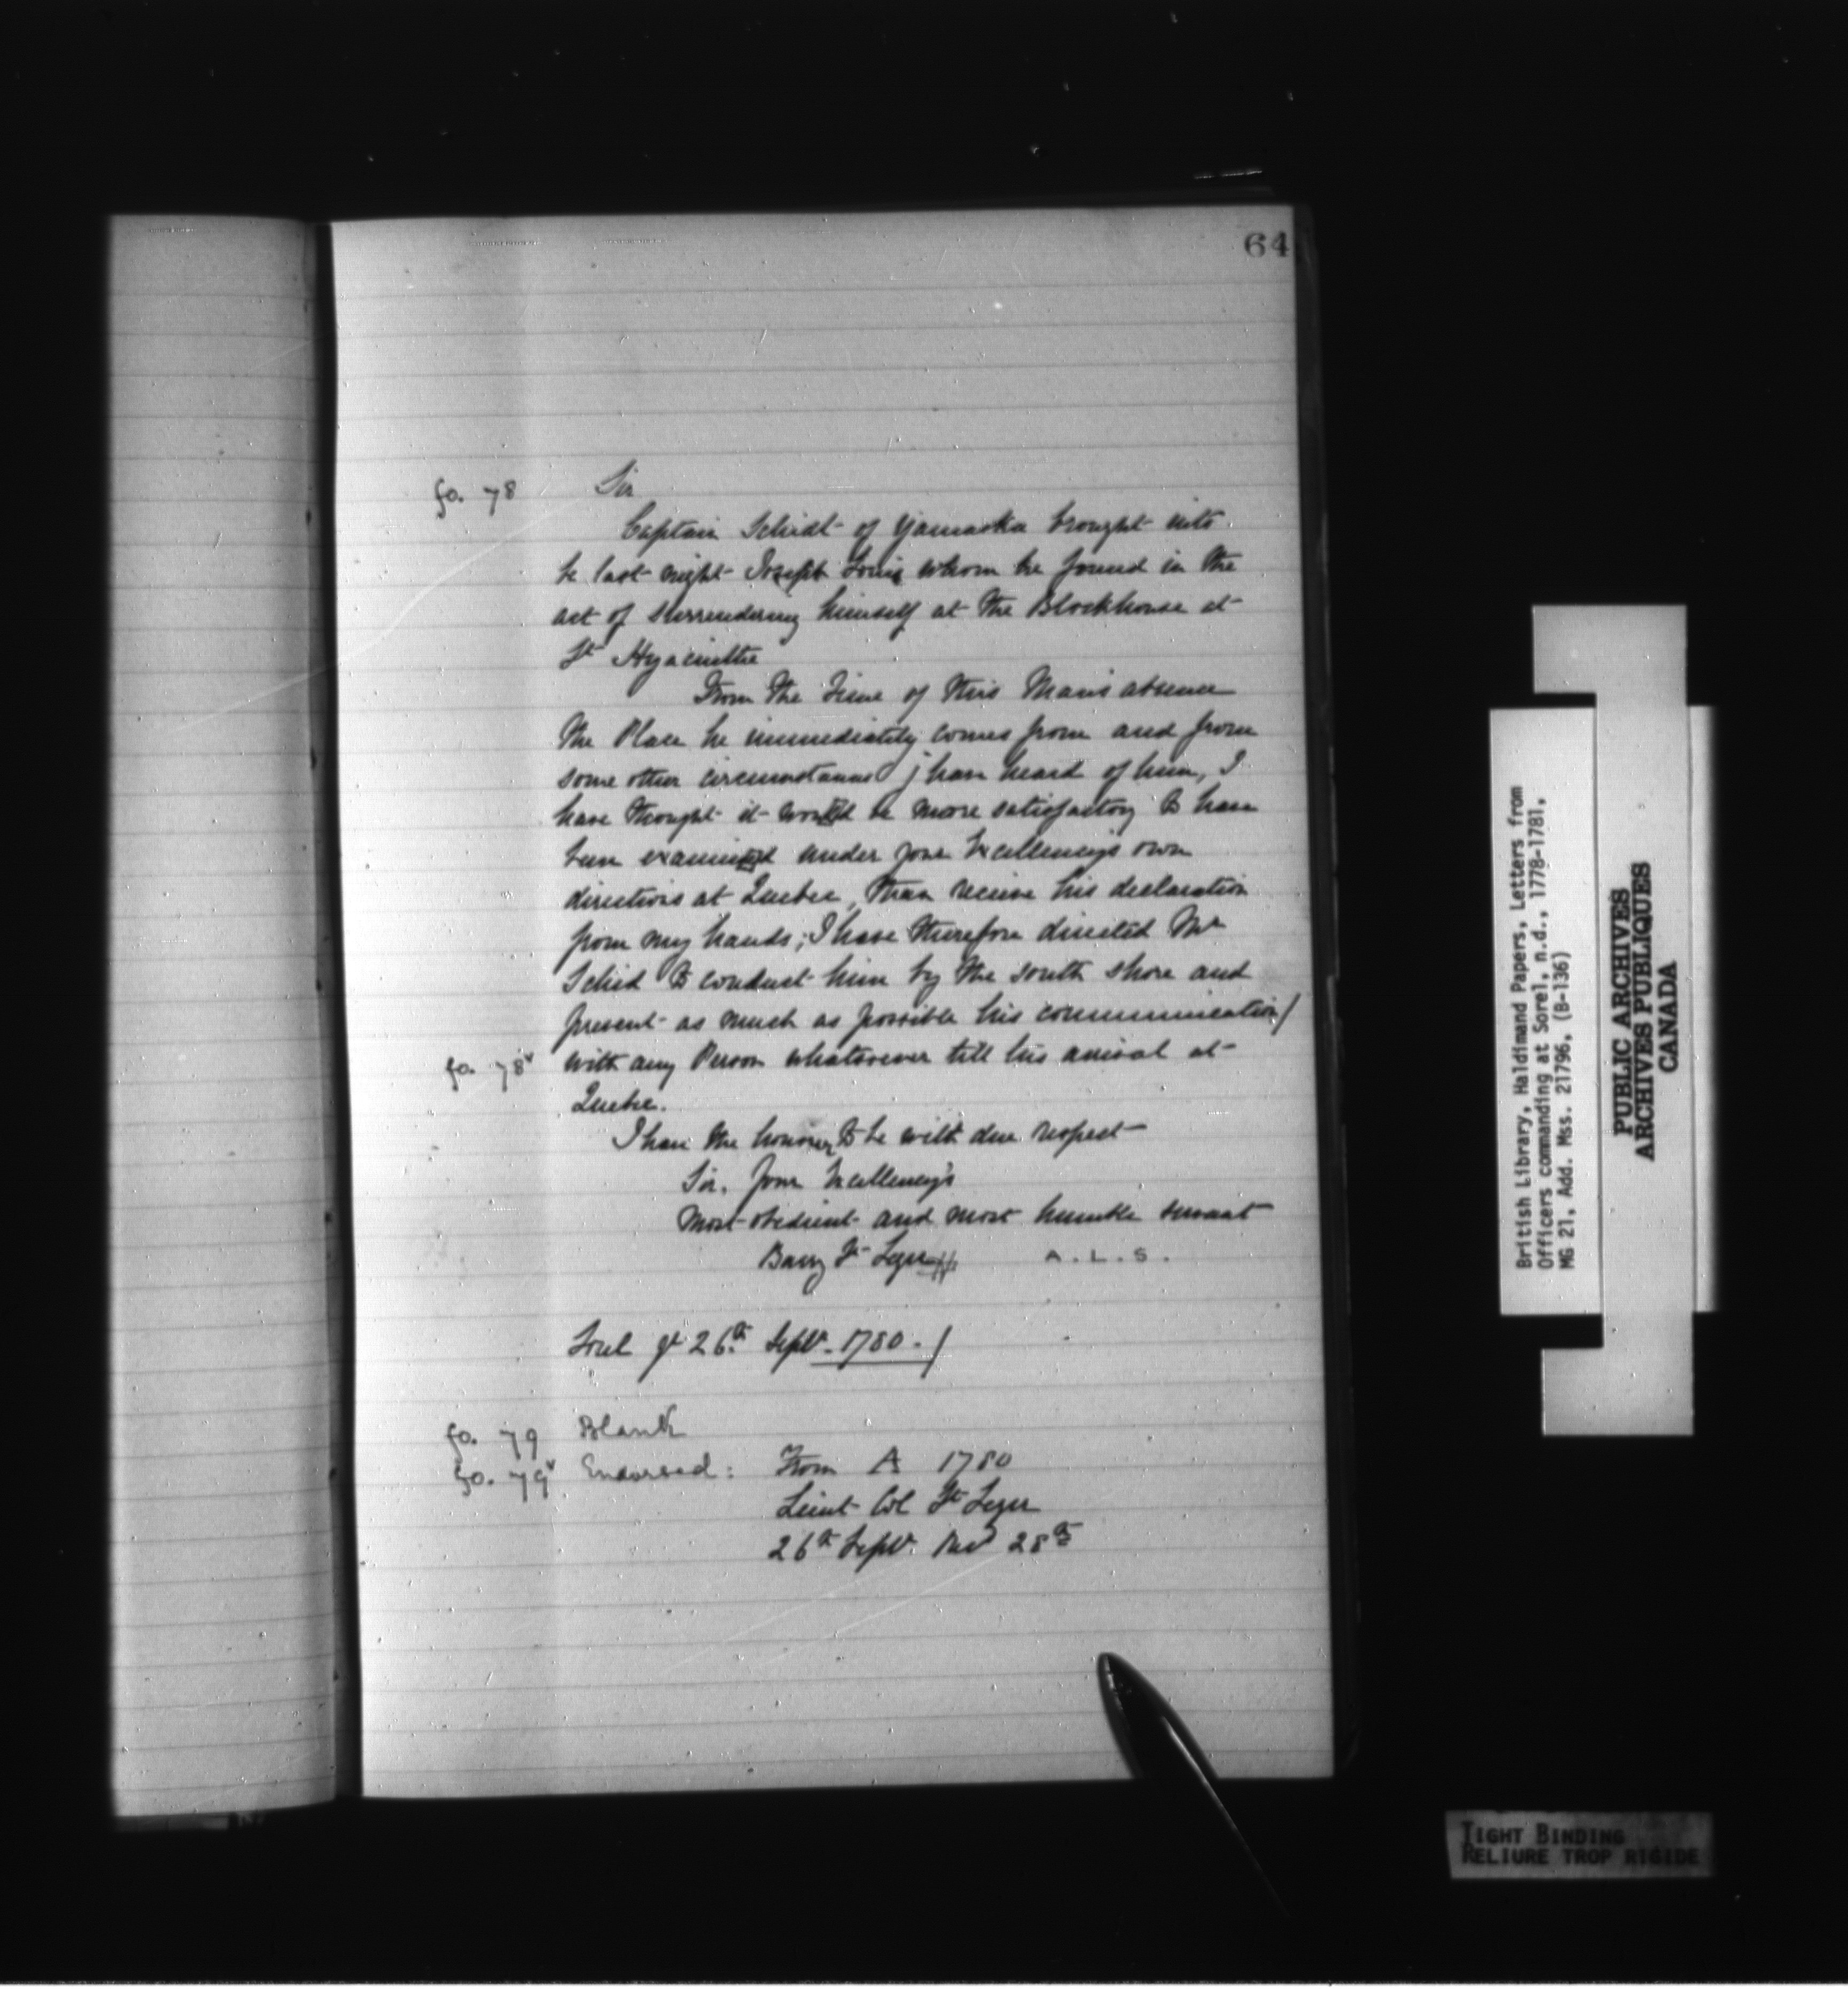 64
fo. 78 Sir
Captain Schidt of Yamaska brought into
te last night Joseph Louis whom he found in the
act of surrendering himself at the Blockhouse at
St Hyacinthe
From the Time of this Man's absence
the Place he immediately comes from and from
some other circumstances j have heard of him, I
have thought it would be more satisfactory to have
him examined under your Excellency's own
directions at Quebec, than receive his declaration
from my hands; I have therefore directed Mr
Schid to conduct him by the south shore and
prevent as much as possible his communication/
fo. 78v with any Person whatsoever till his arival at
Quebec.
I have the honour to be with due respect
Sir, your Excellency's
most obedient and most humble servant
Barry St Leger A.L.S.
Sorel ye 26th Septr. 1780./
fo. 79 Blank
fo. 79v Endorsed: From A 1780
Lieut Col St Leger
26th Septr. Recd 28th
British Library, Haldimand Papers, Letters from
Officers commanding at Sorel, n.d., 1778-1781,
MG 21, Add. Mss. 21796, (B-136)
PUBLIC ARCHIVES
ARCHIVES PUBLIQUES
CANADA
TIGHT BINDING
RELIURE TROP RIGIDE